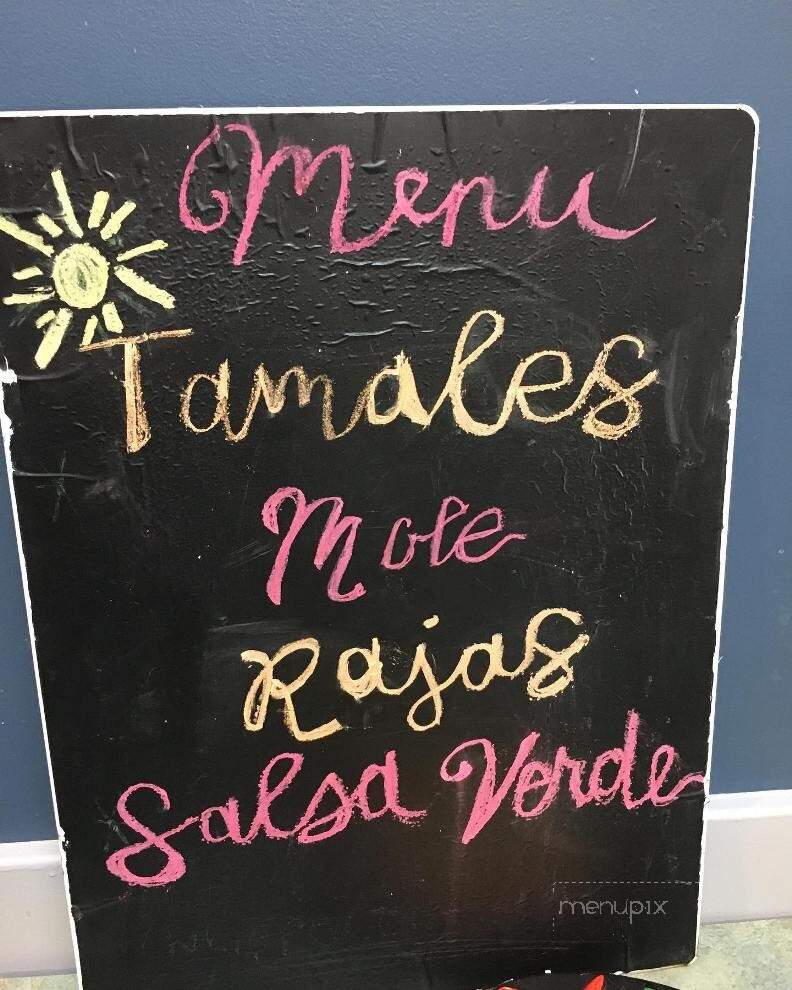 Menu
Tamales
Mole
Rajas
Salsa Verde
menupix